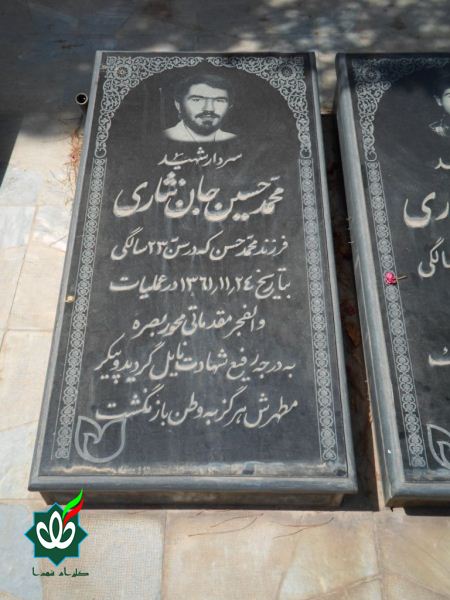 سردار شهید
محمد حسین جان نثاری
فرزند محمد حسن که در سن ۲۳ سالگی
بتاریخ ۱۳۶۱٫۱۱٫۲۴ در عملیات
والفجر مقدماتی محور بصره
به درجه رفیع شهادت نایل گردید و پیکر
مطهرش هرگز به وطن باز نگشت